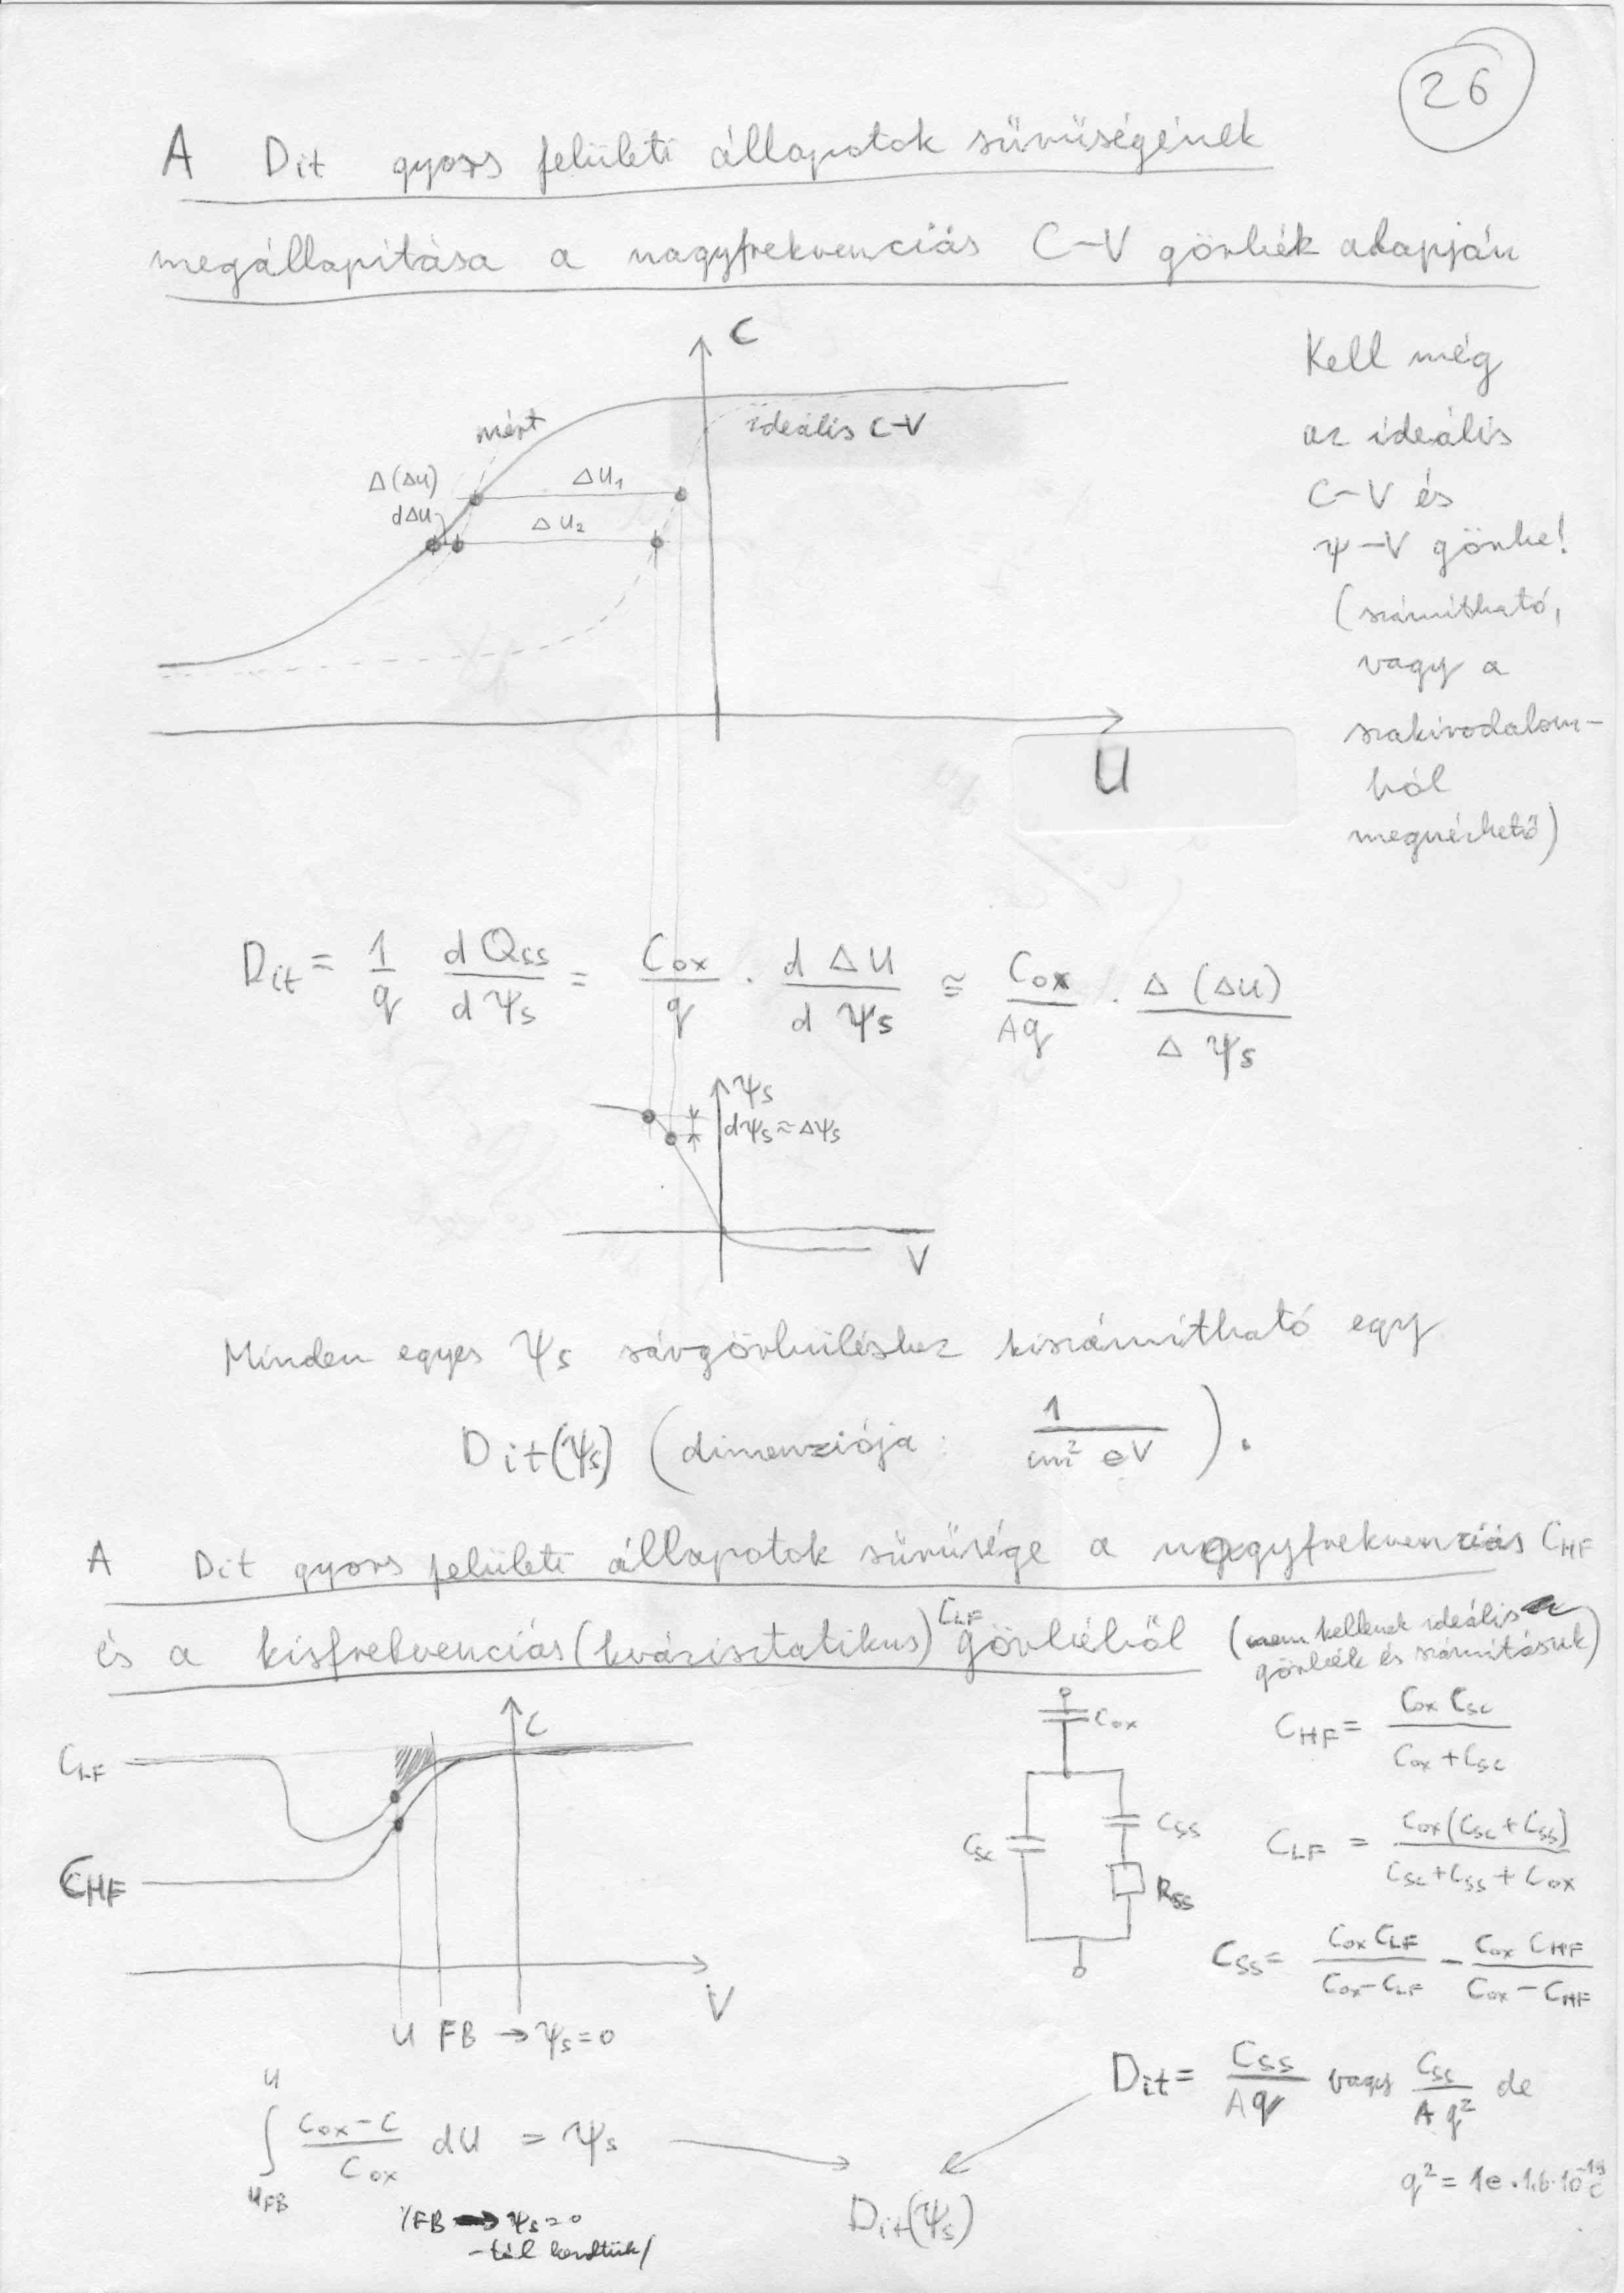 26
A Dit gyors felületi állapotok sűrűségének
megállapítása a nagyfrekvenciás C-V görbék alapján
C
mért
ideális C-V
Δ(Δu)
ΔU₁
dΔU
ΔU₂
U
Kell még
az ideális
C-V és
ψ-V görbe!
(számítható,
vagy a
szakirodalom-
ból
megnézhető)
Dit = 1/q dQss/dψs = Cox/q · dΔU/dψs ≅ Cox/Aq · Δ(ΔU)/Δψs
ψs
dψs≈Δψs
V
Minden egyes ψs sávgörbüléshez kiszámítható egy
Dit(ψs) (dimenziója: 1/cm² eV).
A Dit gyors felületi állapotok sűrűsége a nagyfrekvenciás CHF
és a kisfrekvenciás (kvázisztatikus) CLF görbéből (nem kellenek ideális
görbék és számításuk)
C
CLF
CHF
V
U FB → ψs=0
Cox
Csc
Css
Rss
CHF = Cox Csc / Cox + Csc
CLF = Cox(Csc + Css) / Csc + Css + Cox
Css = Cox CLF / Cox - CLF - Cox CHF / Cox - CHF
Dit = Css/Aq vagy Css/Aq² de
q² = 1e · 1,6·10⁻¹⁹ C
∫ U UFB Cox-C/Cox dU = ψs
/FB → ψs=0
-tól kezdtük/
Dit(ψs)